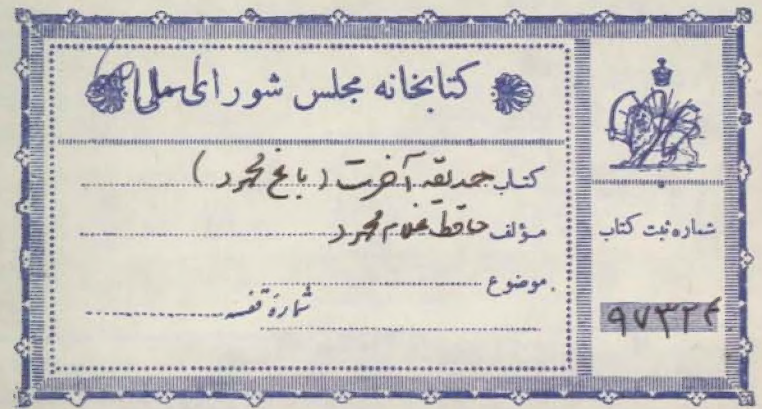 کتابخانه مجلس شورای ملی
کتاب حدیقه آخرت ( باغ محمود )
مؤلف حافظ غلام محمود
موضوع
شمارهٔ قفسه
شماره ثبت کتاب
۹۷۳۲۴